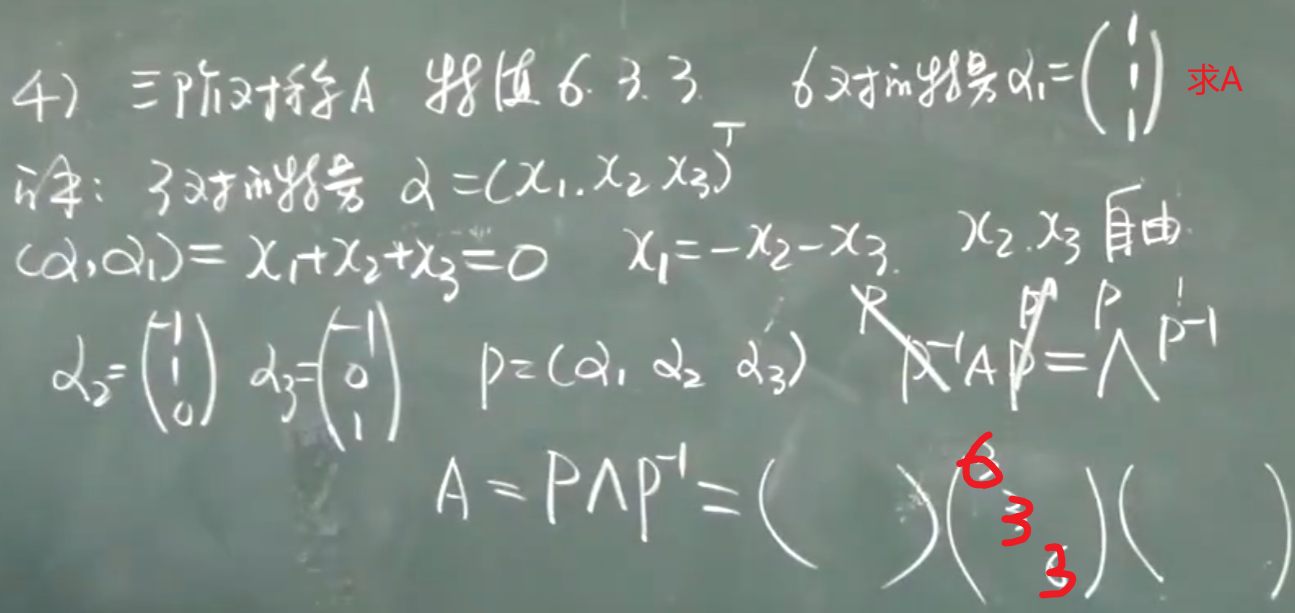 4) 三阶对称A 特值 6. 3. 3. 6对应特量 α₁=(1 1 1) 求A
译: 3对应特量 α=(x₁. x₂ x₃)ᵀ
(α,α₁)=x₁+x₂+x₃=0 x₁=-x₂-x₃. x₂.x₃自由.
α₂=(-1 1 0) α₃=(-1 0 1) P=(α₁ α₂ α₃) P⁻¹AP=Λ P P⁻¹
A=PΛP⁻¹=( )(6 3 3)( )